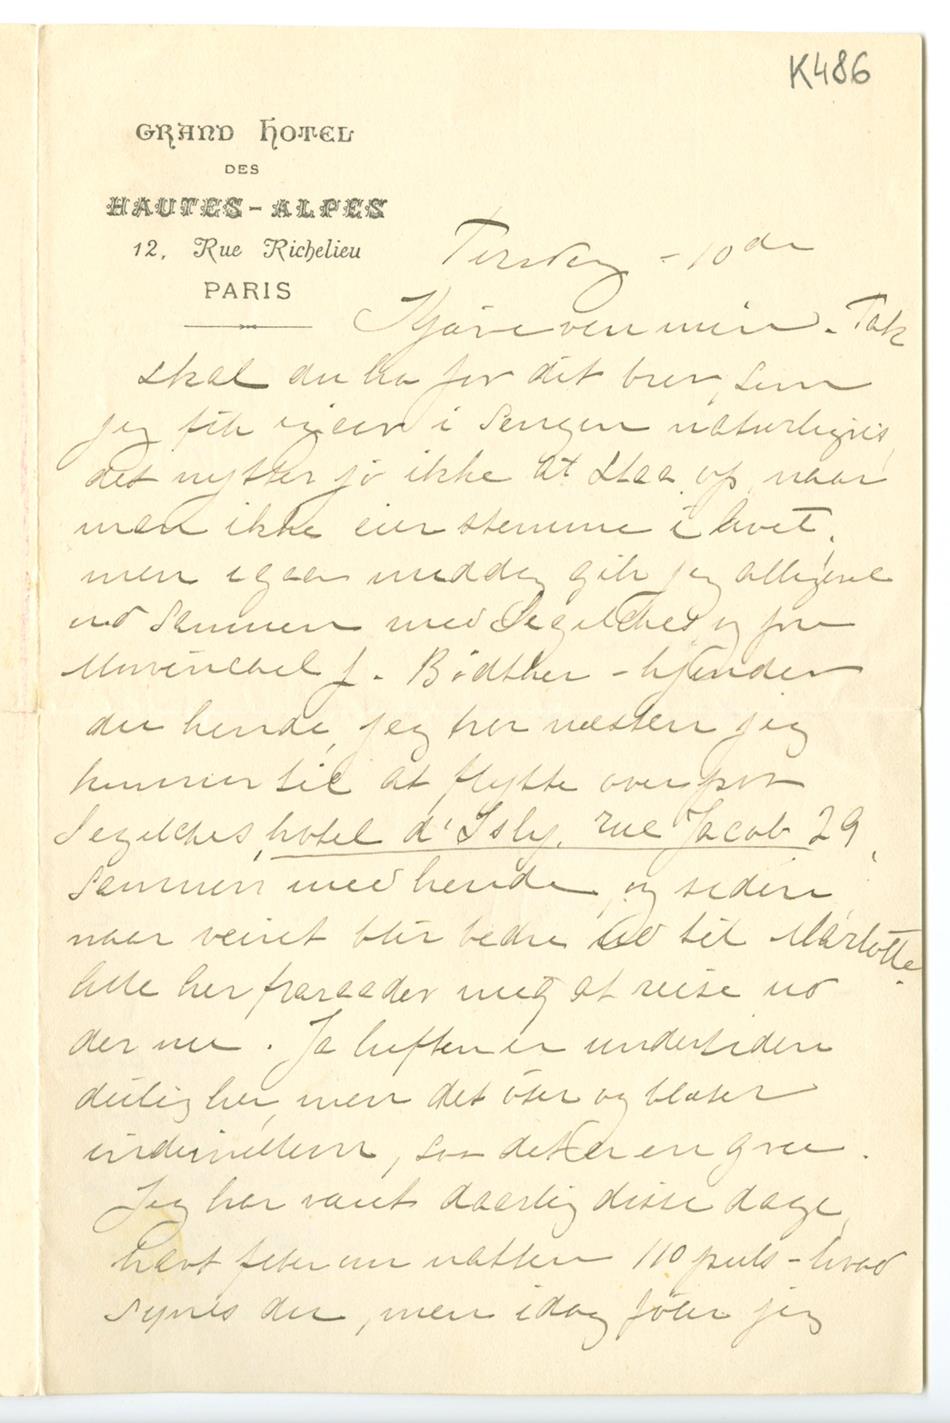 K486
GRAND HOTEL
DES
HAUTES-ALPES
12, Rue Richelieu
PARIS
Tirsdag - 10de
Kjære ven min. Tak
skal du ha for dit brev, som
jeg fik igaar i sengen naturligvis,
det nytter jo ikke at staa op, naar
man ikke eier stemme i livet,
men igaar middag gik jeg alligevel
ud sammen med Segelckes og fru
f. Bödtker - kjender
du hende, jeg tror næsten jeg
kommer til at flytte over paa
Segelckes hotel d'Isly, rue Jacob 29,
sammen med hende, og siden
naar veiret blir bedre ud til Marlotte.
Alle her fraraader mig at reise ud
der nu. Ja luften er undertiden
deilig her, men det öser og blæser
indimellem, saa det er en gru.
Jeg har været daarlig disse dage,
havt feber om natten 110 puls - hvad
synes du, men idag föler jeg